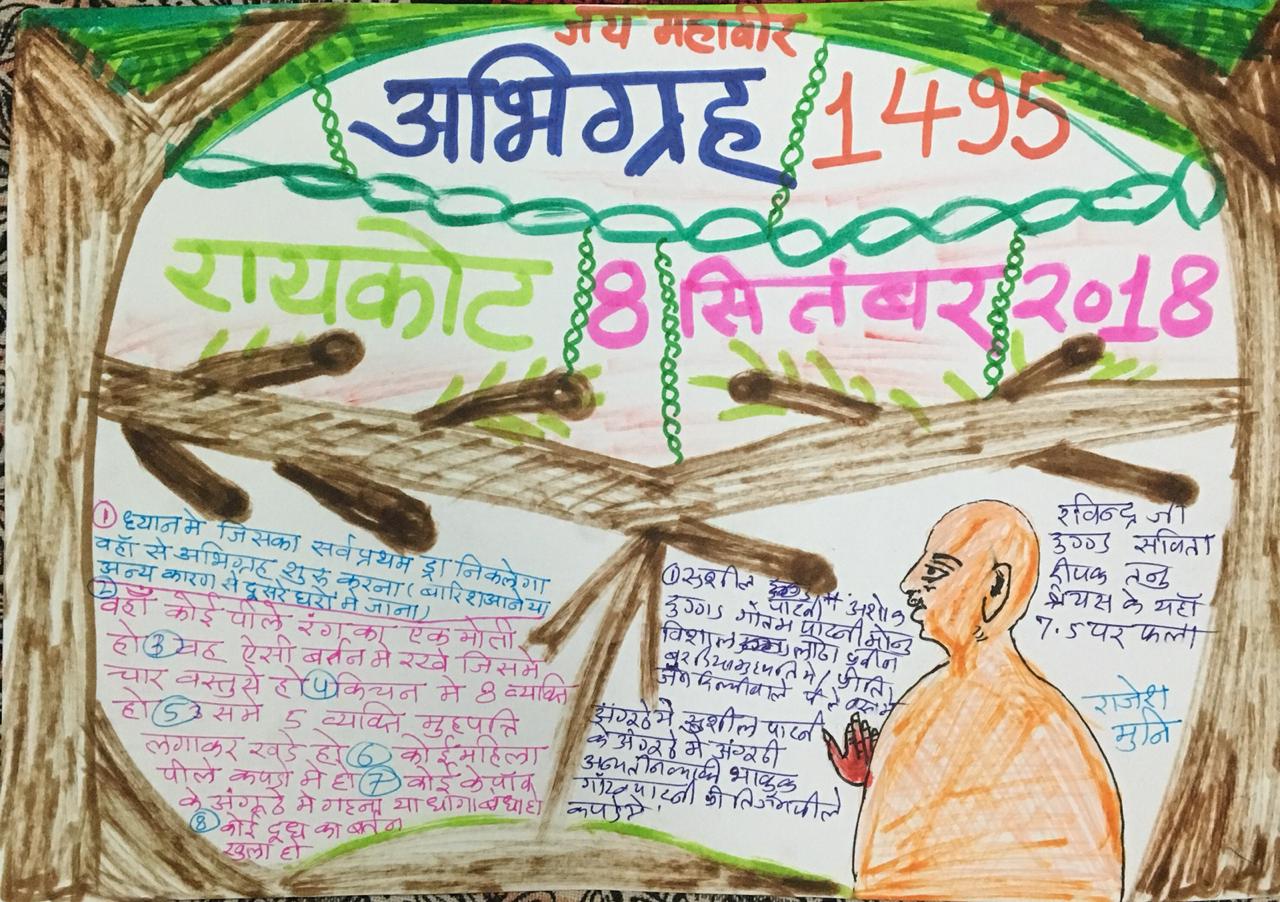 जय महावीर
अभिग्रह 1495
रायकोट 8 सितंबर २०18
① ध्यान मे जिसका सर्वप्रथम ड्रा निकलेगा
वहाँ से अभिग्रह शुरु करना (बारिश आने या
अन्य कारण से दूसरे घरो मे जाना)
② वहाँ कोई पीले रंग का एक मोती
हो ③ वह ऐसी बर्तन मे रखे जिसमे
चार वस्तुसे हो ④ किचन मे 8 व्यक्ति
हो ⑤ उसमे 5 व्यक्ति मुहपत्ति
लगाकर खडे हो ⑥ कोई महिला
पीले कपडो मे हो ⑦ कोई के पाँव
के अंगूठे मे गहना या धागा बंधा हो
⑧ कोई दूध का बर्तन
खुला हो
① सुशील
पाटनी अशोक
दुग्गड गौतम पाटनी मोनु
विशाल लोढा प्रवीन
मे प्रीति
जैन दिल्लीवाले
अंगूठे मे सुशील पाटनी
के अंगूठे मे अंगूठी
पाटनी प्रीति जैन पीले
कपडे मे
रविन्द्र जी
दुग्गड सविता
दीपक तनु
श्रेयस के यहाँ
7.5 पर फला
राजेश
मुनि